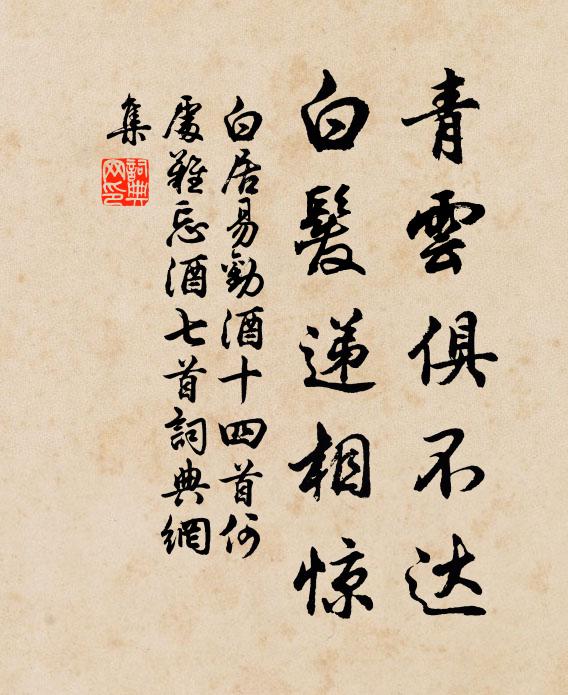 青雲俱不达
白髮递相惊
白居易勸酒十四首何
處難忘酒七首詞典網
集
詞典
网印